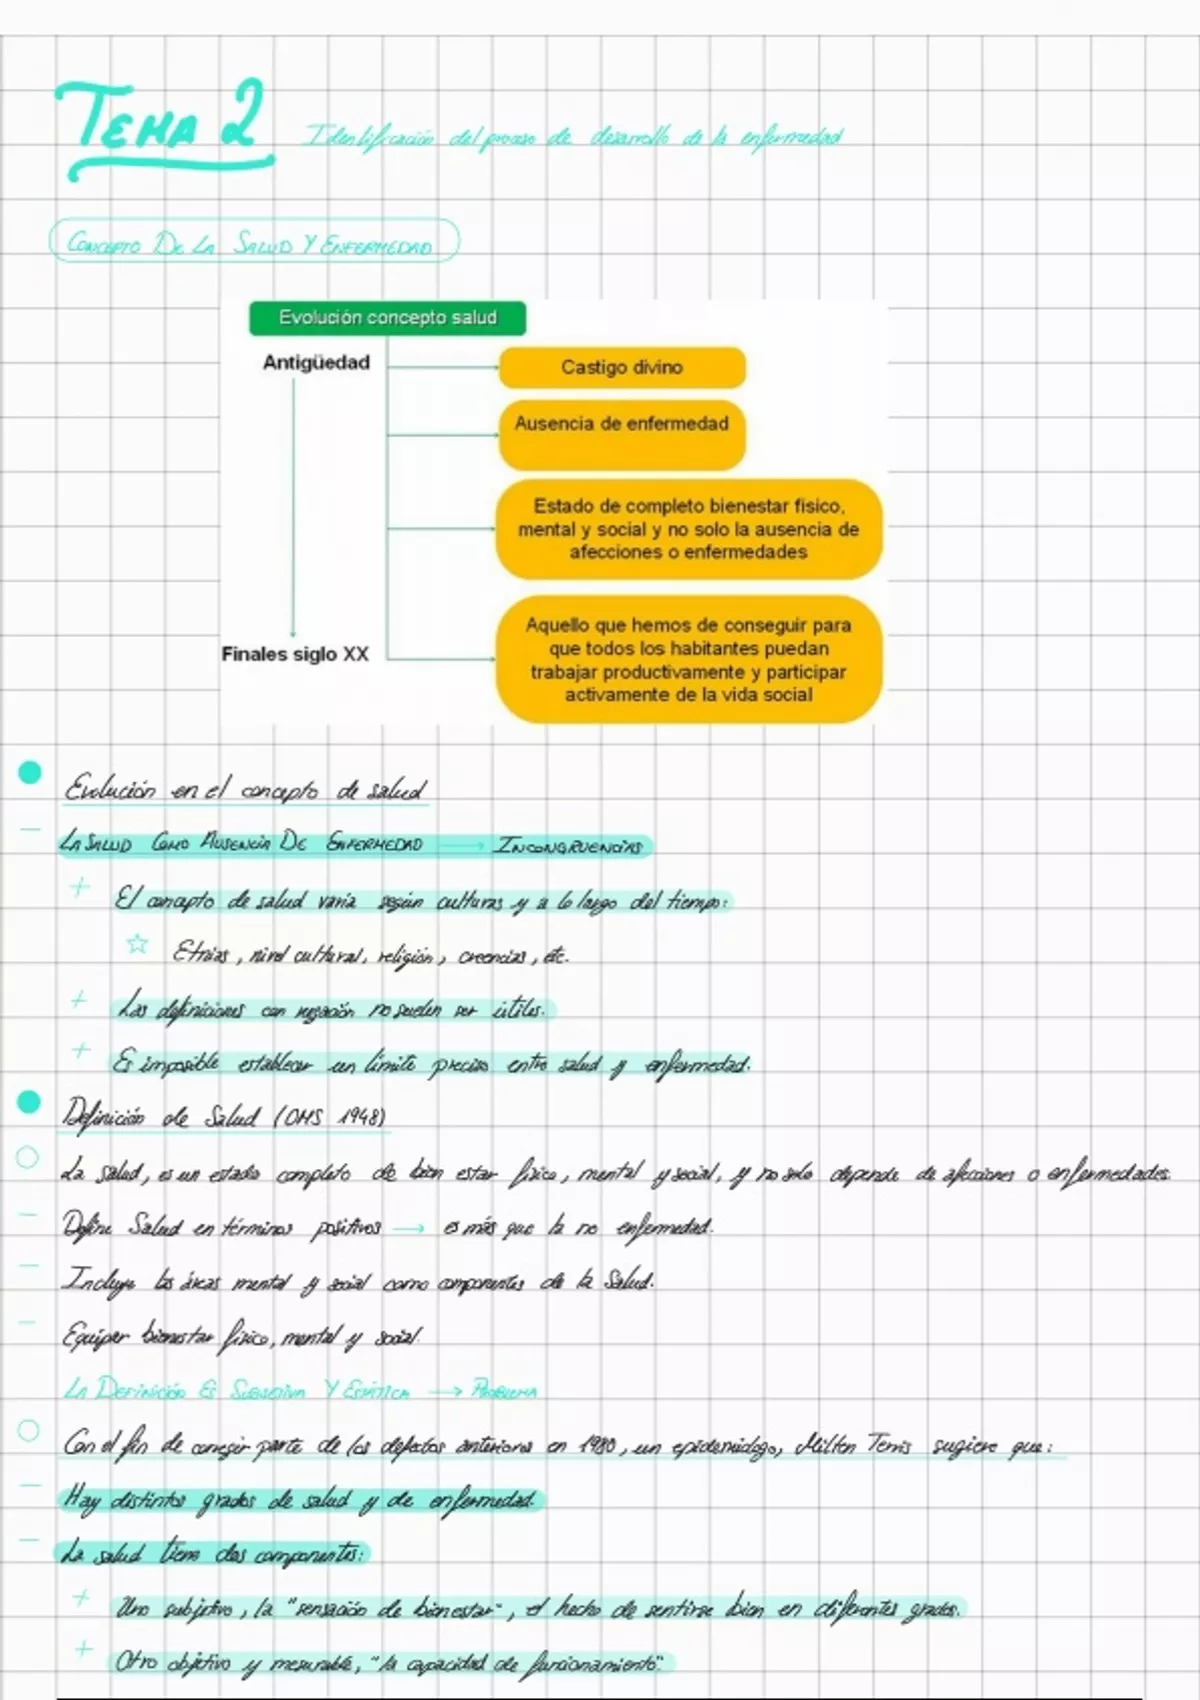 TEMA 2 Identificación del proceso de desarrollo de la enfermedad
CONCEPTO DE LA SALUD Y ENFERMEDAD
Evolución concepto salud
Antigüedad
Castigo divino
Ausencia de enfermedad
Estado de completo bienestar físico,
mental y social y no solo la ausencia de
afecciones o enfermedades
Aquello que hemos de conseguir para
que todos los habitantes puedan
trabajar productivamente y participar
activamente de la vida social
Finales siglo XX
Evolución en el concepto de salud
LA SALUD COMO AUSENCIA DE ENFERMEDAD → INCONGRUENCIAS
+ El concepto de salud varía según culturas y a lo largo del tiempo:
☆ Etnias, nivel cultural, religión, creencias, etc.
+ Las definiciones con negación no suelen ser útiles.
+ Es imposible establecer un límite preciso entre salud y enfermedad.
Definición de Salud (OMS 1948)
La salud, es un estado completo de bien estar físico, mental y social, y no solo depende de afecciones o enfermedades.
- Define Salud en términos positivos → es más que la no enfermedad.
- Incluye las áreas mental y social como componentes de la Salud.
- Equipar bienestar físico, mental y social.
LA DEFINICIÓN ES SUBJETIVA Y ESTÁTICA → PROBLEMA
Con el fin de corregir parte de los defectos anteriores en 1980, un epidemiólogo, Milton Terris sugiere que:
- Hay distintos grados de salud y de enfermedad.
- La salud tiene dos componentes:
+ Uno subjetivo, la "sensación de bienestar", el hecho de sentirse bien en diferentes grados.
+ Otro objetivo y mesurable, "la capacidad de funcionamiento".